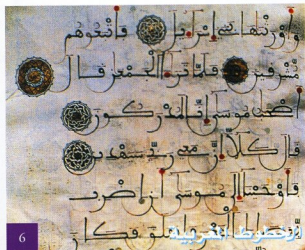 وأورثنها بني إسراءيل فأتبعوهم
مشرقين فلما ترءا الجمعن قال
أصحب موسى إنا لمدركون
قال كلا إن معي ربي سيهدين
فأوحينا إلى موسى أن اضرب
فانفلق فكان
6